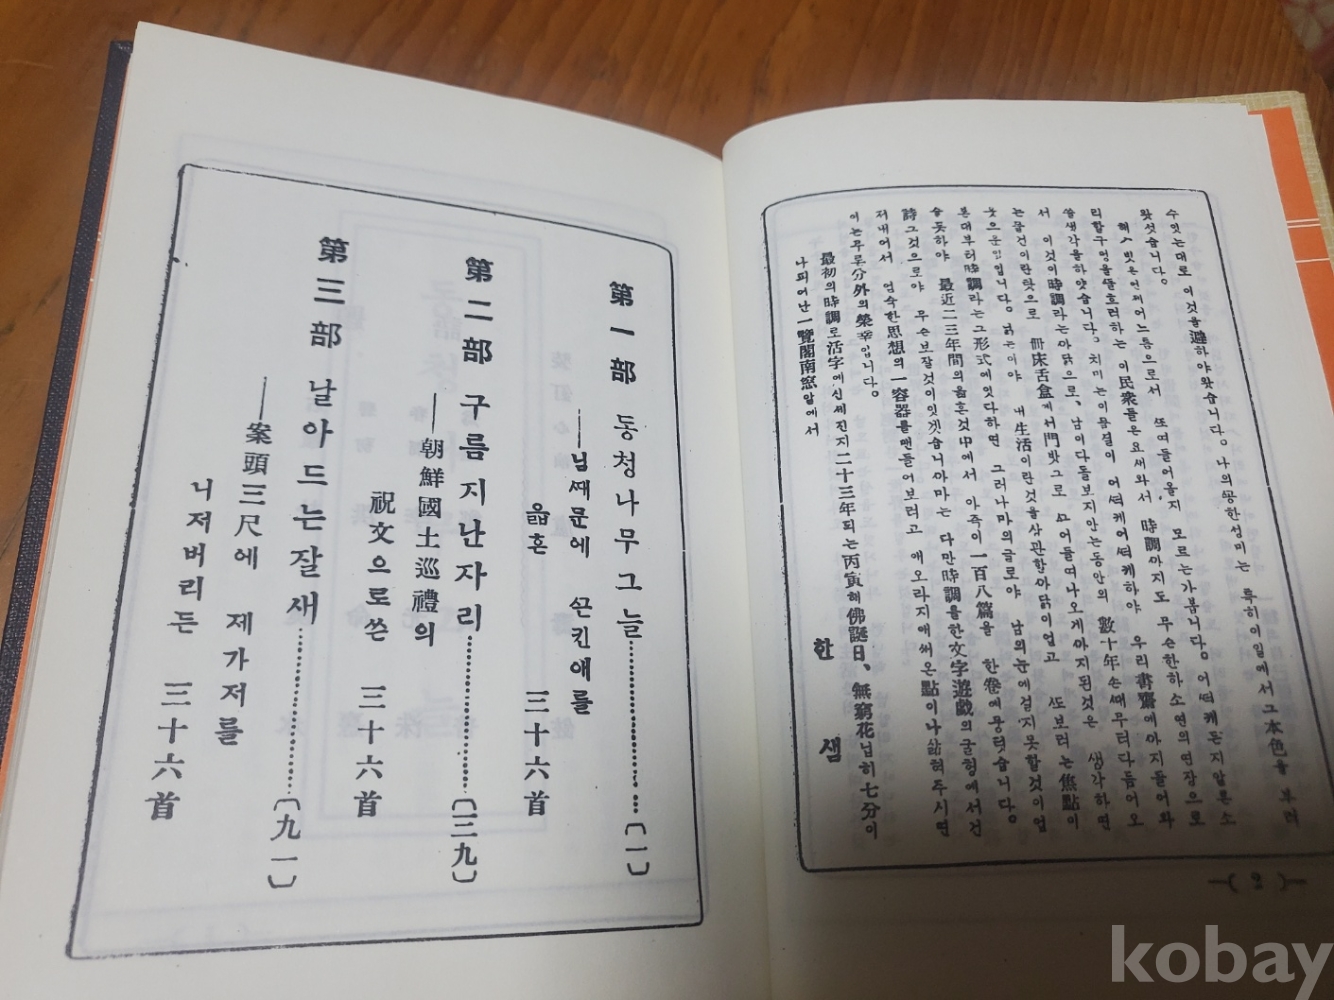 수잇는대로 이것을避하야왓습니다。나의 한성미는 특히이일에서그本色을 부려
왓섯습니다。
헤ㅅ빗은언제어느틈으로서 ᄯᅩ여들어올지 모르는가봅니다。어ᄯᅥ케든지알은소
리할구멍을ᄯᅮᆯ흐려하는 이民衆들은요새와서 時調ᄭᅡ지도 무슨한하소연의연장으로
쓸생각을하얏습니다。치미는이믈결이 어ᄯᅥ케어ᄯᅥ케하야 우리書齋에ᄭᅡ지들어와
서 이것이時調라는ᄭᅡ닭으로、남이다돌보지안는동안의 數十年손ᄯᅢ무더다듬어오
는물건이란탓으로 冊床舌盒에서門밧그로 ᄭᅳ어들여나오게ᄭᅡ지된것은 생각하면
웃으운일입니다。낡는이야 내生活이란것을상관할ᄭᅡ닭이업고 ᄯᅩ보려는焦點이
본대부터時調라는그形式에잇다하면 그러나마의글로야 남의눈에걸지못할것이업
슬듯하야 最近二三年間의읇흔것中에서 아즉이一百八篇을 한卷에뭉텃습니다。
詩그것으로야 무슨보잘것이잇겟습니ᄭᅡ마는 다만時調를한文字遊戱의굴헝에서건
저내어서 엄숙한思想의一容器를맨들어보려고 애오라지애써온點이나삷혀주시면
이는무론分外의榮幸입니다。
最初의時調로活字에신세진지二十三年되는丙寅해佛誕日、無窮花닙히七分이
나피어난一覽閣南窓알에서
한 샘
第一部 동청나무그늘………〔一〕
──님ᄯᅢ문에 ᄭᅳᆫ긴애를
읇흔 三十六首
第二部 구름지난자리………〔三九〕
──朝鮮國土巡禮의
祝文으로쓴 三十六首
第三部 날아드는잘새………〔九一〕
──案頭三尺에 제가저를
니저버리든 三十六首
kobay